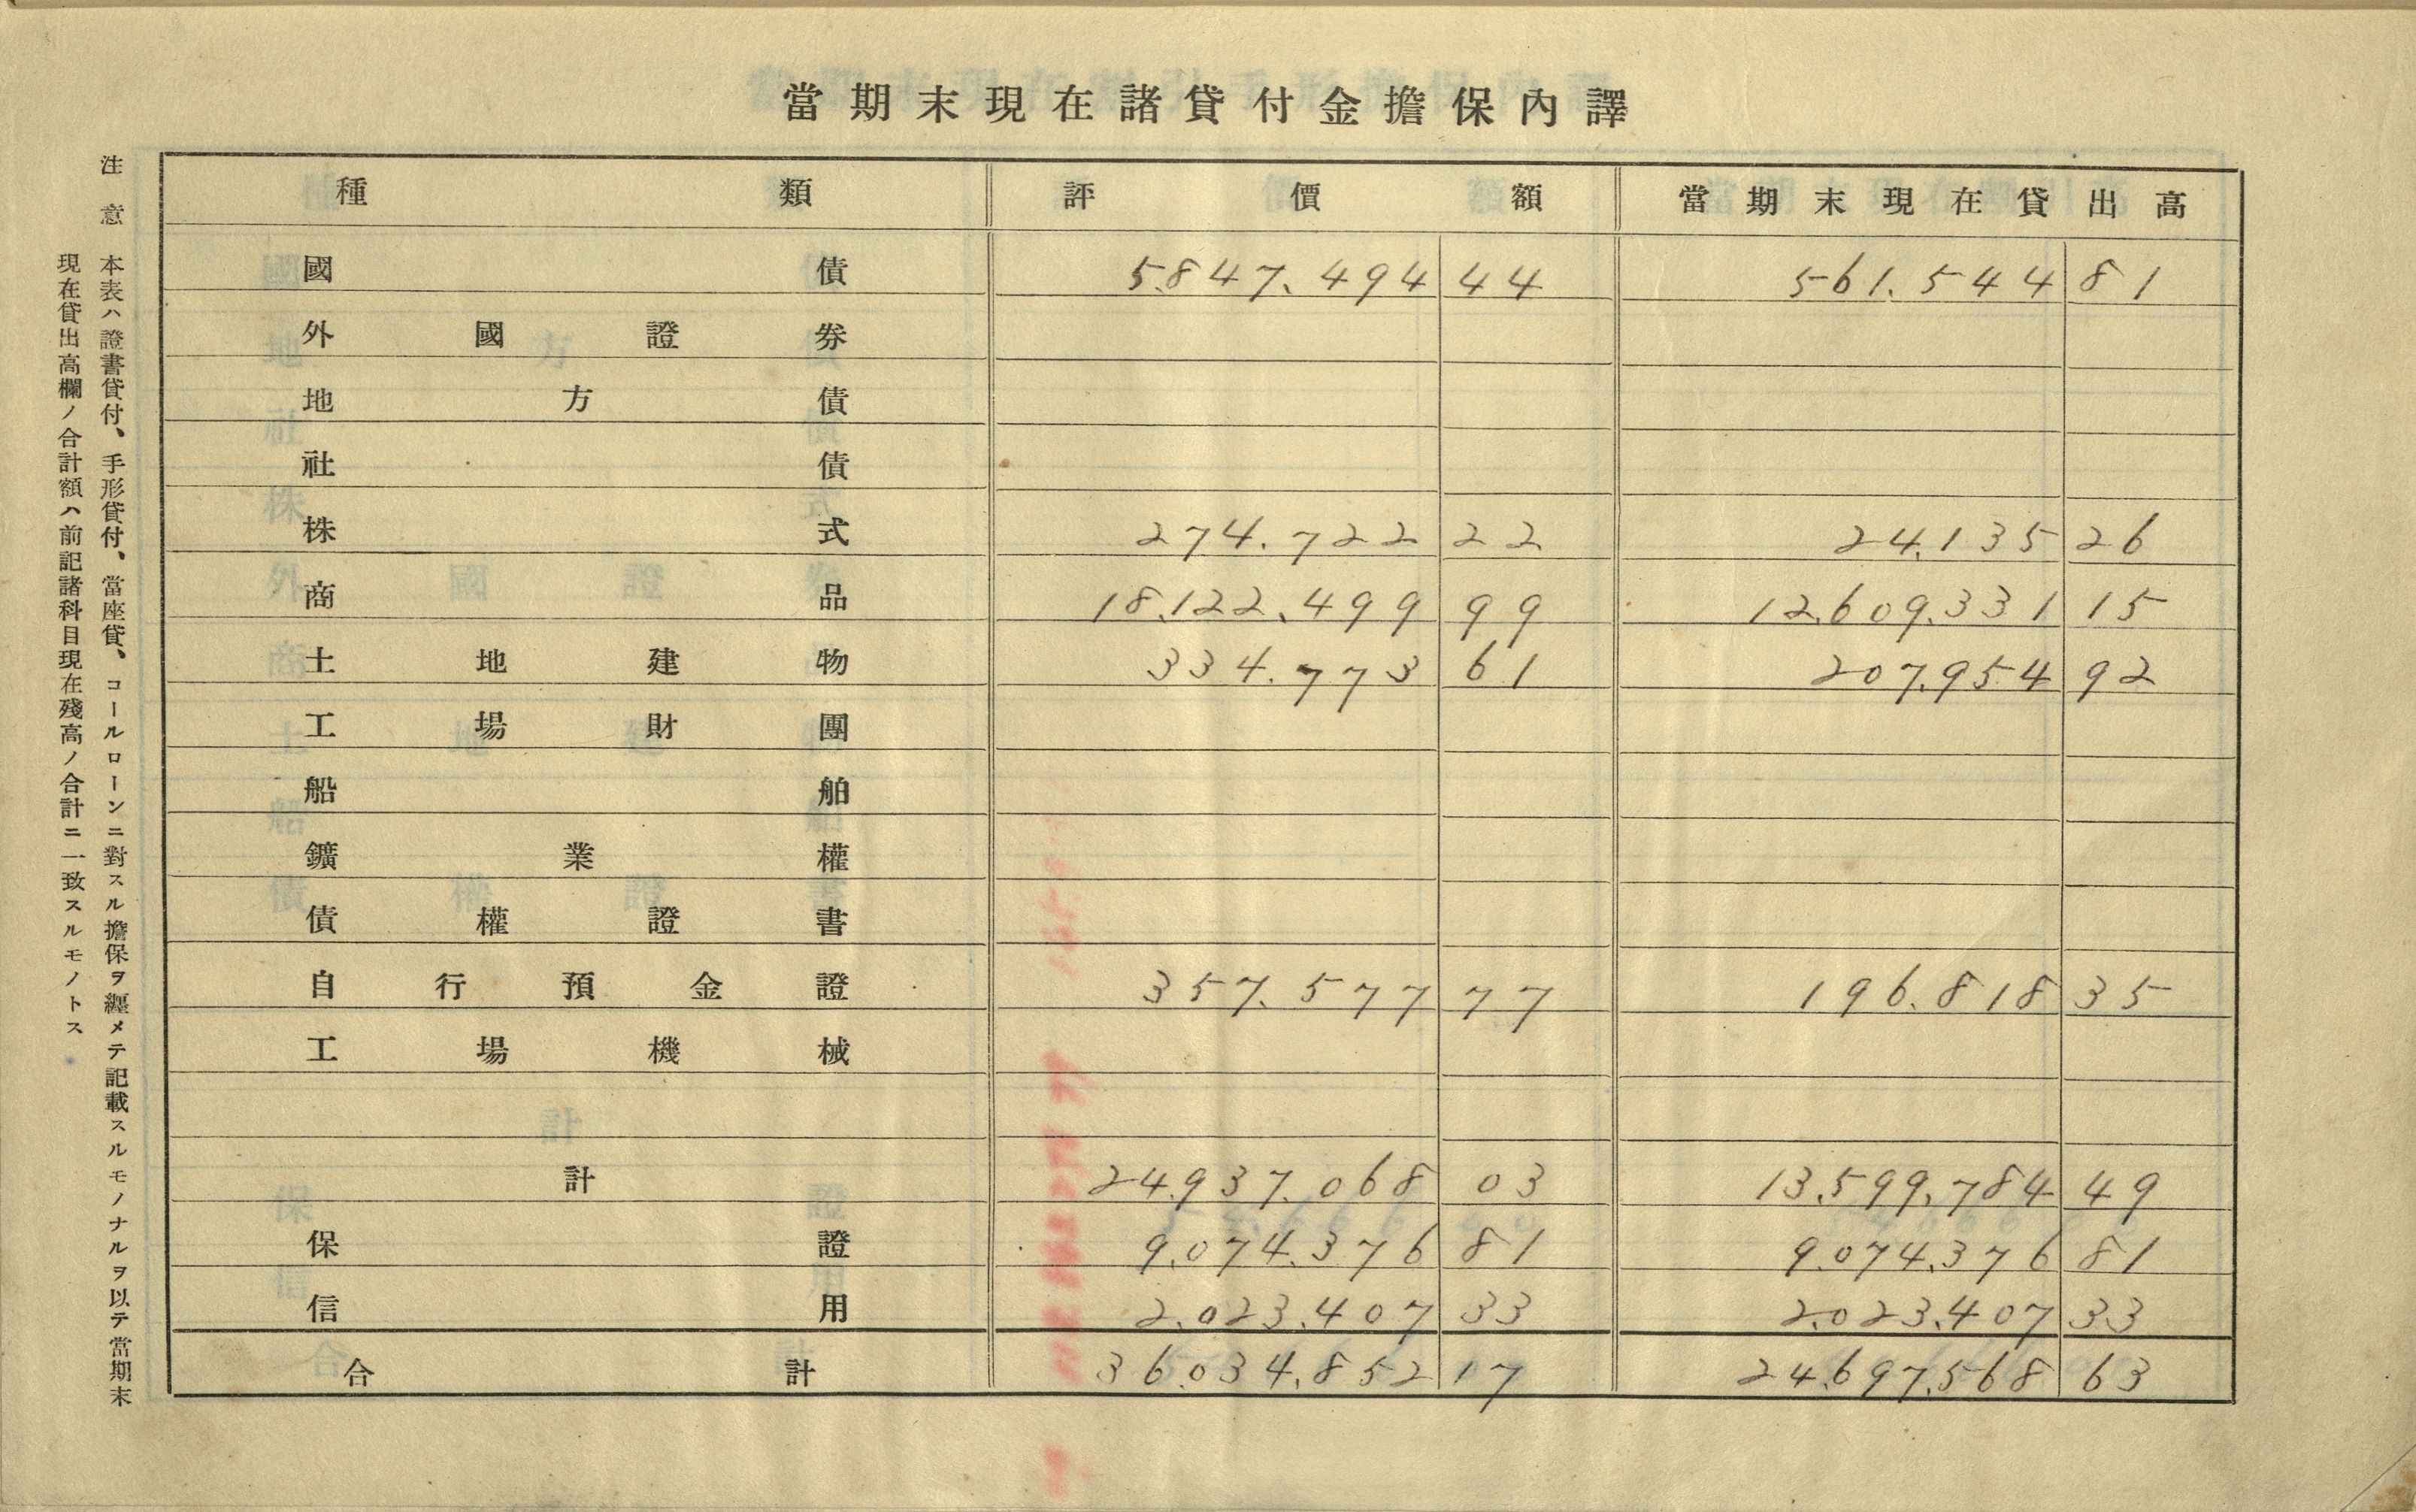 當期末現在諸貸付金擔保內譯
種類 評價額 當期末現在貸出高
國債 5.847.494 44 561.544 81
外國證券
地方債
社債
株式 274.722 22 24.135 26
商品 18.122.499 99 12.609.331 15
土地建物 334.773 61 207.954 92
工場財團
船舶
鑛業權
債權證書
自行預金證 357.577 77 196.818 35
工場機械
計 24.937.068 03 13.599.784 49
保證 9.074.376 81 9.074.376 81
信用 2.023.407 33 2.023.407 33
合計 36.034.852 17 24.697.568 63
注意 本表ハ證書貸付、手形貸付、當座貸、コールローンニ對スル擔保ヲ纒メテ記載スルモノナルヲ以テ當期末
現在貸出高欄ノ合計額ハ前記諸科目現在殘高ノ合計ニ一致スルモノトス